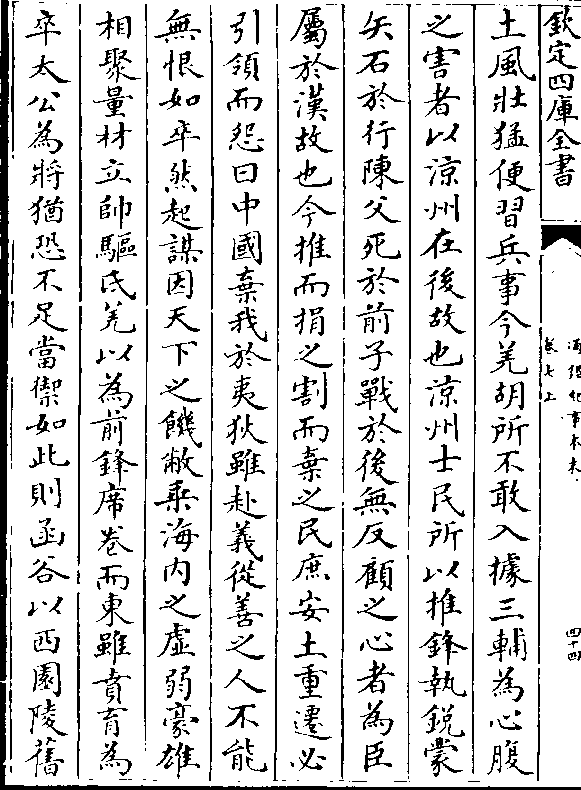 欽定四庫全書
通鑑紀事本末
卷七上
四十四
土風壯猛便習兵事今羌胡所不敢入據三輔為心腹
之害者以涼州在後故也涼州士民所以推鋒執銳蒙
矢石於行陳父死於前子戰於後無反顧之心者為臣
屬於漢故也今推而捐之割而棄之民庶安土重遷必
引領而怨曰中國棄我於夷狄雖赴義從善之人不能
無恨如卒然起謀因天下之饑敝乘海内之虚弱豪雄
相聚量材立帥驅氐羌以為前鋒席卷而東雖賁育為
卒太公為將猶恐不足當禦如此則函谷以西園陵舊